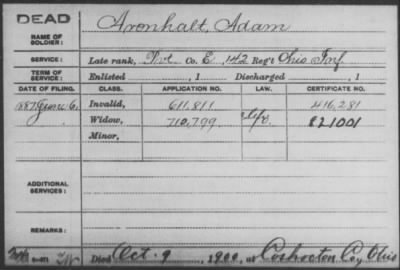 DEAD
NAME OF SOLDIER: Aronhalt, Adam
SERVICE: Late rank, Pvt Co. E, 142 Reg't Ohio Inf.
TERM OF SERVICE: Enlisted , 1 Discharged , 1
DATE OF FILING. CLASS. APPLICATION NO. LAW. CERTIFICATE NO.
887 June 6. Invalid, 611.811 416,281
Widow, 710,799 821001
Minor,
ADDITIONAL SERVICES:
REMARKS:
Died Oct. 9, 1900, at Coshocton Co, Ohio